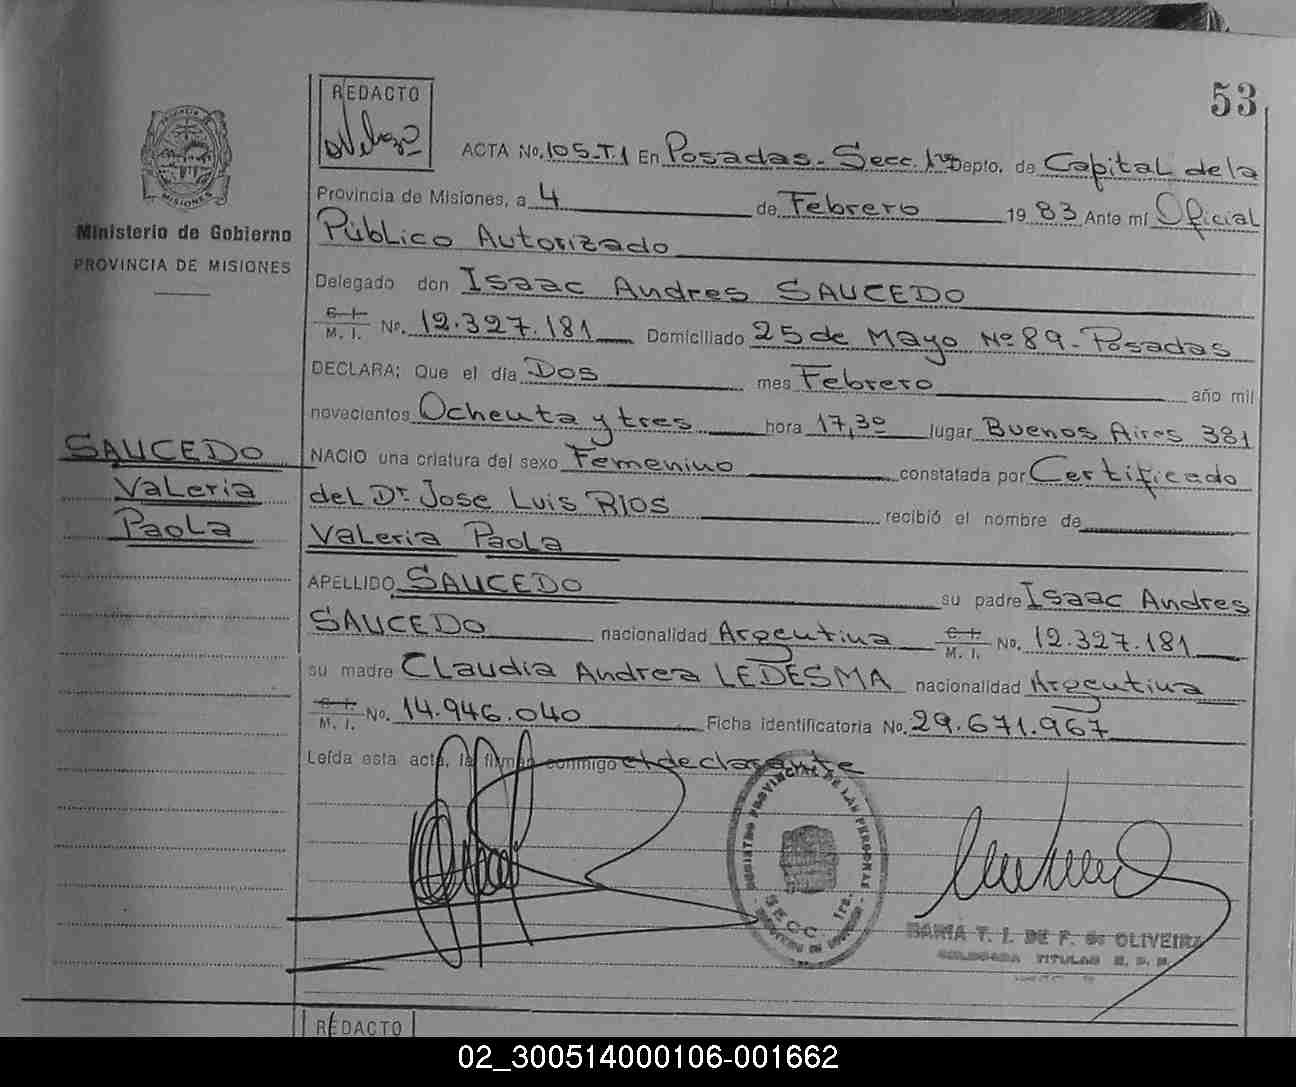 53
REDACTO
ACTA No. 105-T.1 En Posadas - Secc. 1ra Depto. de Capital de la
Provincia de Misiones, a 4 de Febrero 1983 Ante mí Oficial
Público Autorizado
Ministerio de Gobierno
PROVINCIA DE MISIONES
Delegado don Isaac Andres SAUCEDO
C. I.
M. I. No. 12.327.181 Domiciliado 25 de Mayo Nº 89 - Posadas
DECLARA: Que el día Dos mes Febrero año mil
novecientos Ochenta y tres hora 17,30 lugar Buenos Aires 381
SAUCEDO
Valeria
Paola
NACIO una criatura del sexo Femenino constatada por Certificado
del Dr. Jose Luis RIOS recibió el nombre de
Valeria Paola
APELLIDO SAUCEDO su padre Isaac Andres
SAUCEDO nacionalidad Argentina C. I. M. I. No. 12.327.181
su madre Claudia Andrea LEDESMA nacionalidad Argentina
C. I.
M. I. No. 14.946.040 Ficha identificatoria No. 29.671.967
Leída esta acta, la firman conmigo el declarante
REGISTRO PROVINCIAL DE LAS PERSONAS
SECC. 1ra.
MARIA T. I. DE F. de OLIVEIRA
TITULAR
REDACTO
02_300514000106-001662